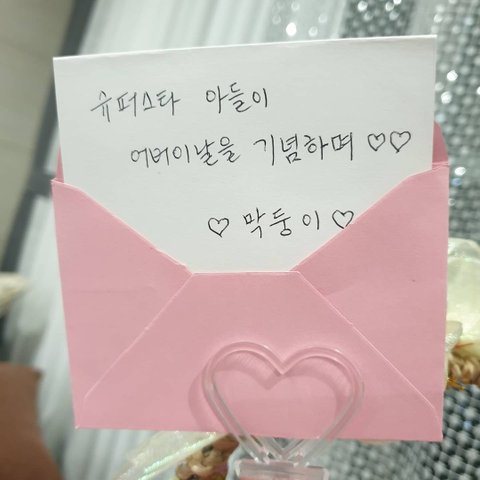 슈퍼스타 아들이
어버이날을 기념하며 ♡♡
♡ 막둥이 ♡